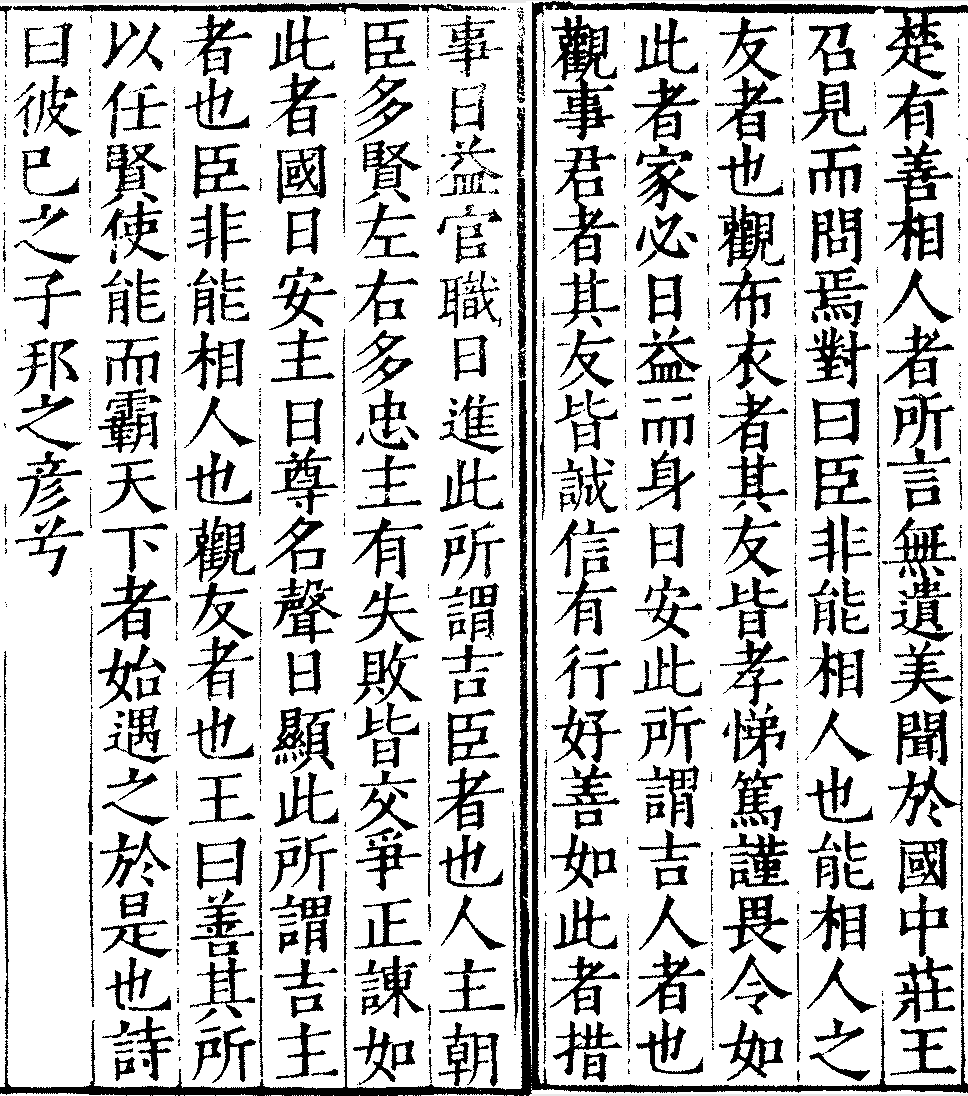 楚有善相人者所言無遺美聞於國中莊王
召見而問焉對曰臣非能相人也能相人之
友者也觀布衣者其友皆孝悌篤謹畏令如
此者家必日益而身日安此所謂吉人者也
觀事君者其友皆誠信有行好善如此者措
事日益官職日進此所謂吉臣者也人主朝
臣多賢左右多忠主有失敗皆交爭正諫如
此者國日安主日尊名聲日顯此所謂吉主
者也臣非能相人也觀友者也王曰善其所
以任賢使能而霸天下者始遇之於是也詩
曰彼已之子邦之彦兮